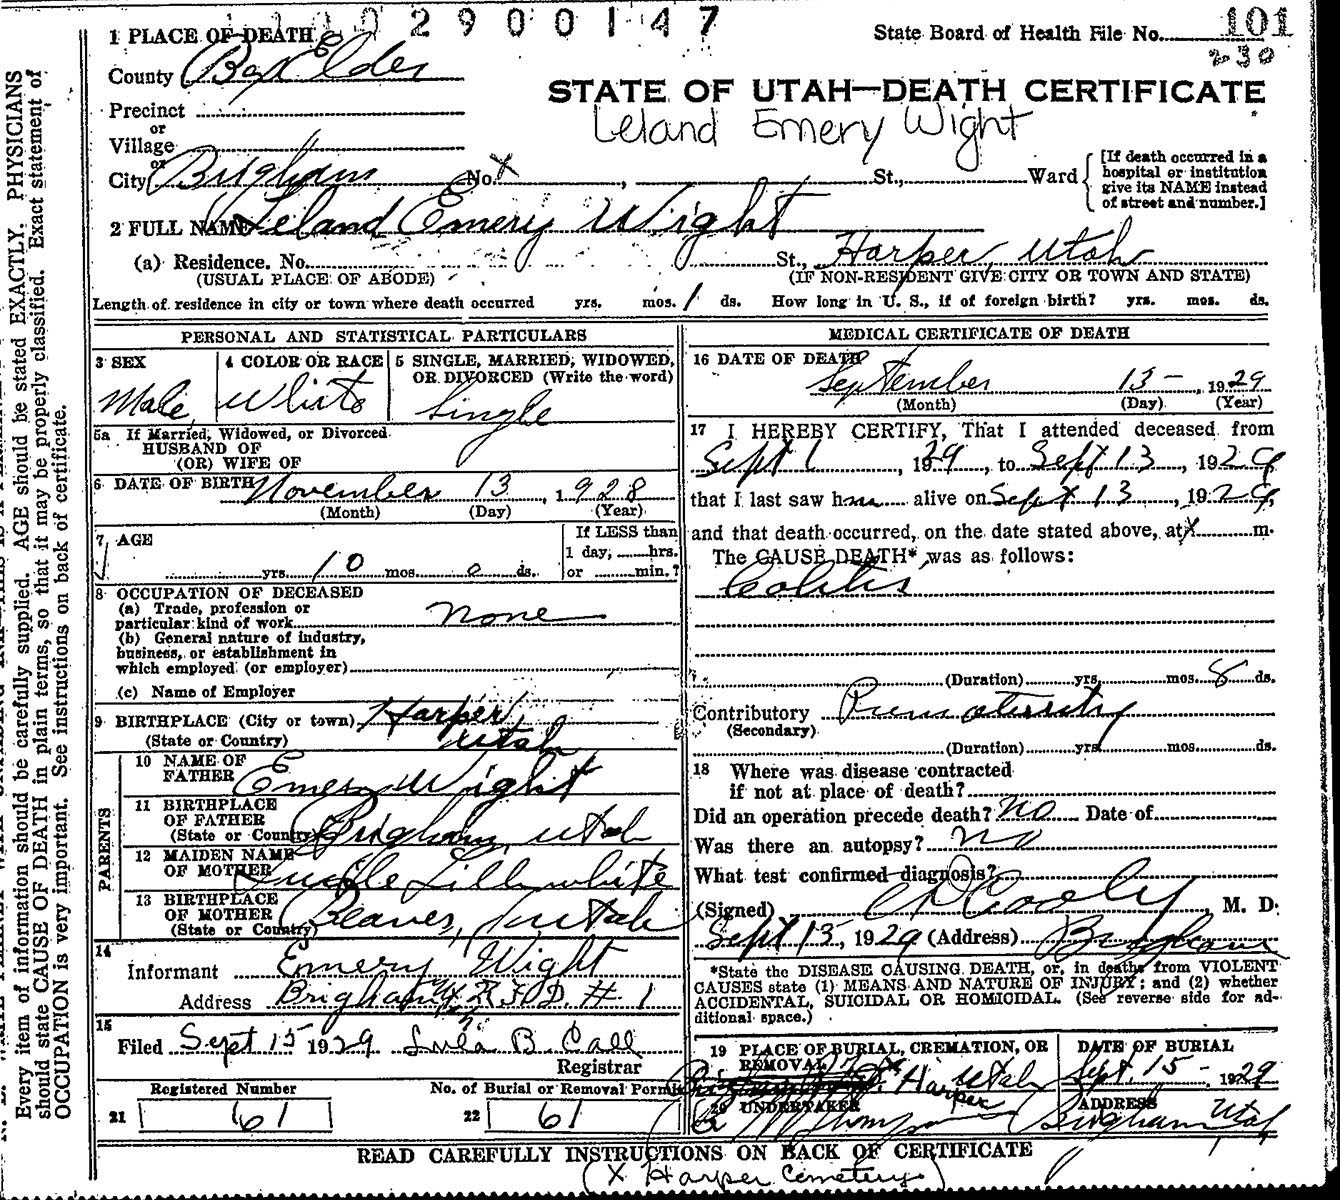 2900147
1 PLACE OF DEATH
State Board of Health File No. 101
230
County Box Elder
STATE OF UTAH—DEATH CERTIFICATE
Precinct
or
Leland Emery Wight
Village
or
City Brigham No. X St., Ward
[If death occurred in a
hospital or institution
give its NAME instead
of street and number.]
2 FULL NAME Leland Emery Wight
(a) Residence. No. St., Harper Utah
(USUAL PLACE OF ABODE) (IF NON-RESIDENT GIVE CITY OR TOWN AND STATE)
Length of residence in city or town where death occurred yrs. mos. 1 ds. How long in U. S., if of foreign birth? yrs. mos. ds.
PERSONAL AND STATISTICAL PARTICULARS
3 SEX 4 COLOR OR RACE 5 SINGLE, MARRIED, WIDOWED,
OR DIVORCED (Write the word)
Male White Single
5a If Married, Widowed, or Divorced
HUSBAND OF
(OR) WIFE OF
6 DATE OF BIRTH November 13, 1928
(Month) (Day) (Year)
7 AGE If LESS than
1 day, hrs.
yrs. 10 mos. 0 ds. or min.?
8 OCCUPATION OF DECEASED
(a) Trade, profession or
particular kind of work None
(b) General nature of industry,
business, or establishment in
which employed (or employer)
(c) Name of Employer
9 BIRTHPLACE (City or town) Harper
(State or Country) Utah
PARENTS
10 NAME OF
FATHER Emery Wight
11 BIRTHPLACE
OF FATHER
(State or Country) Brigham, Utah
12 MAIDEN NAME
OF MOTHER Lucille Lillywhite
13 BIRTHPLACE
OF MOTHER
(State or Country) Beaver, Utah
14
Informant Emery Wight
Address Brigham R.F.D. # 1
15
Filed Sept 15 1929 Lula B. Call
Registrar
Registered Number No. of Burial or Removal Permit
21 61 22 61
MEDICAL CERTIFICATE OF DEATH
16 DATE OF DEATH
September 13-, 1929
(Month) (Day) (Year)
17 I HEREBY CERTIFY, That I attended deceased from
Sept 1, 1929, to Sept 13, 1929
that I last saw him alive on Sept 13, 1929,
and that death occurred, on the date stated above, at X m.
The CAUSE DEATH* was as follows:
Colitis
(Duration) yrs. mos. 8 ds.
Contributory Prematurity
(Secondary)
(Duration) yrs. mos. ds.
18 Where was disease contracted
if not at place of death?
Did an operation precede death? No Date of
Was there an autopsy? No
What test confirmed diagnosis?
(Signed) Cooley, M. D.
Sept 13, 1929 (Address) Brigham
*State the DISEASE CAUSING DEATH, or, in deaths from VIOLENT
CAUSES state (1) MEANS AND NATURE OF INJURY; and (2) whether
ACCIDENTAL, SUICIDAL OR HOMICIDAL. (See reverse side for ad-
ditional space.)
19 PLACE OF BURIAL, CREMATION, OR
REMOVAL
DATE OF BURIAL
X Harper Utah Sept. 15- 1929
Harper
20 UNDERTAKER ADDRESS
Brigham Utah
READ CAREFULLY INSTRUCTIONS ON BACK OF CERTIFICATE
(X Harper Cemetery)
Every item of information should be carefully supplied. AGE should be stated EXACTLY. PHYSICIANS
should state CAUSE OF DEATH in plain terms, so that it may be properly classified. Exact statement of
OCCUPATION is very important. See instructions on back of certificate.